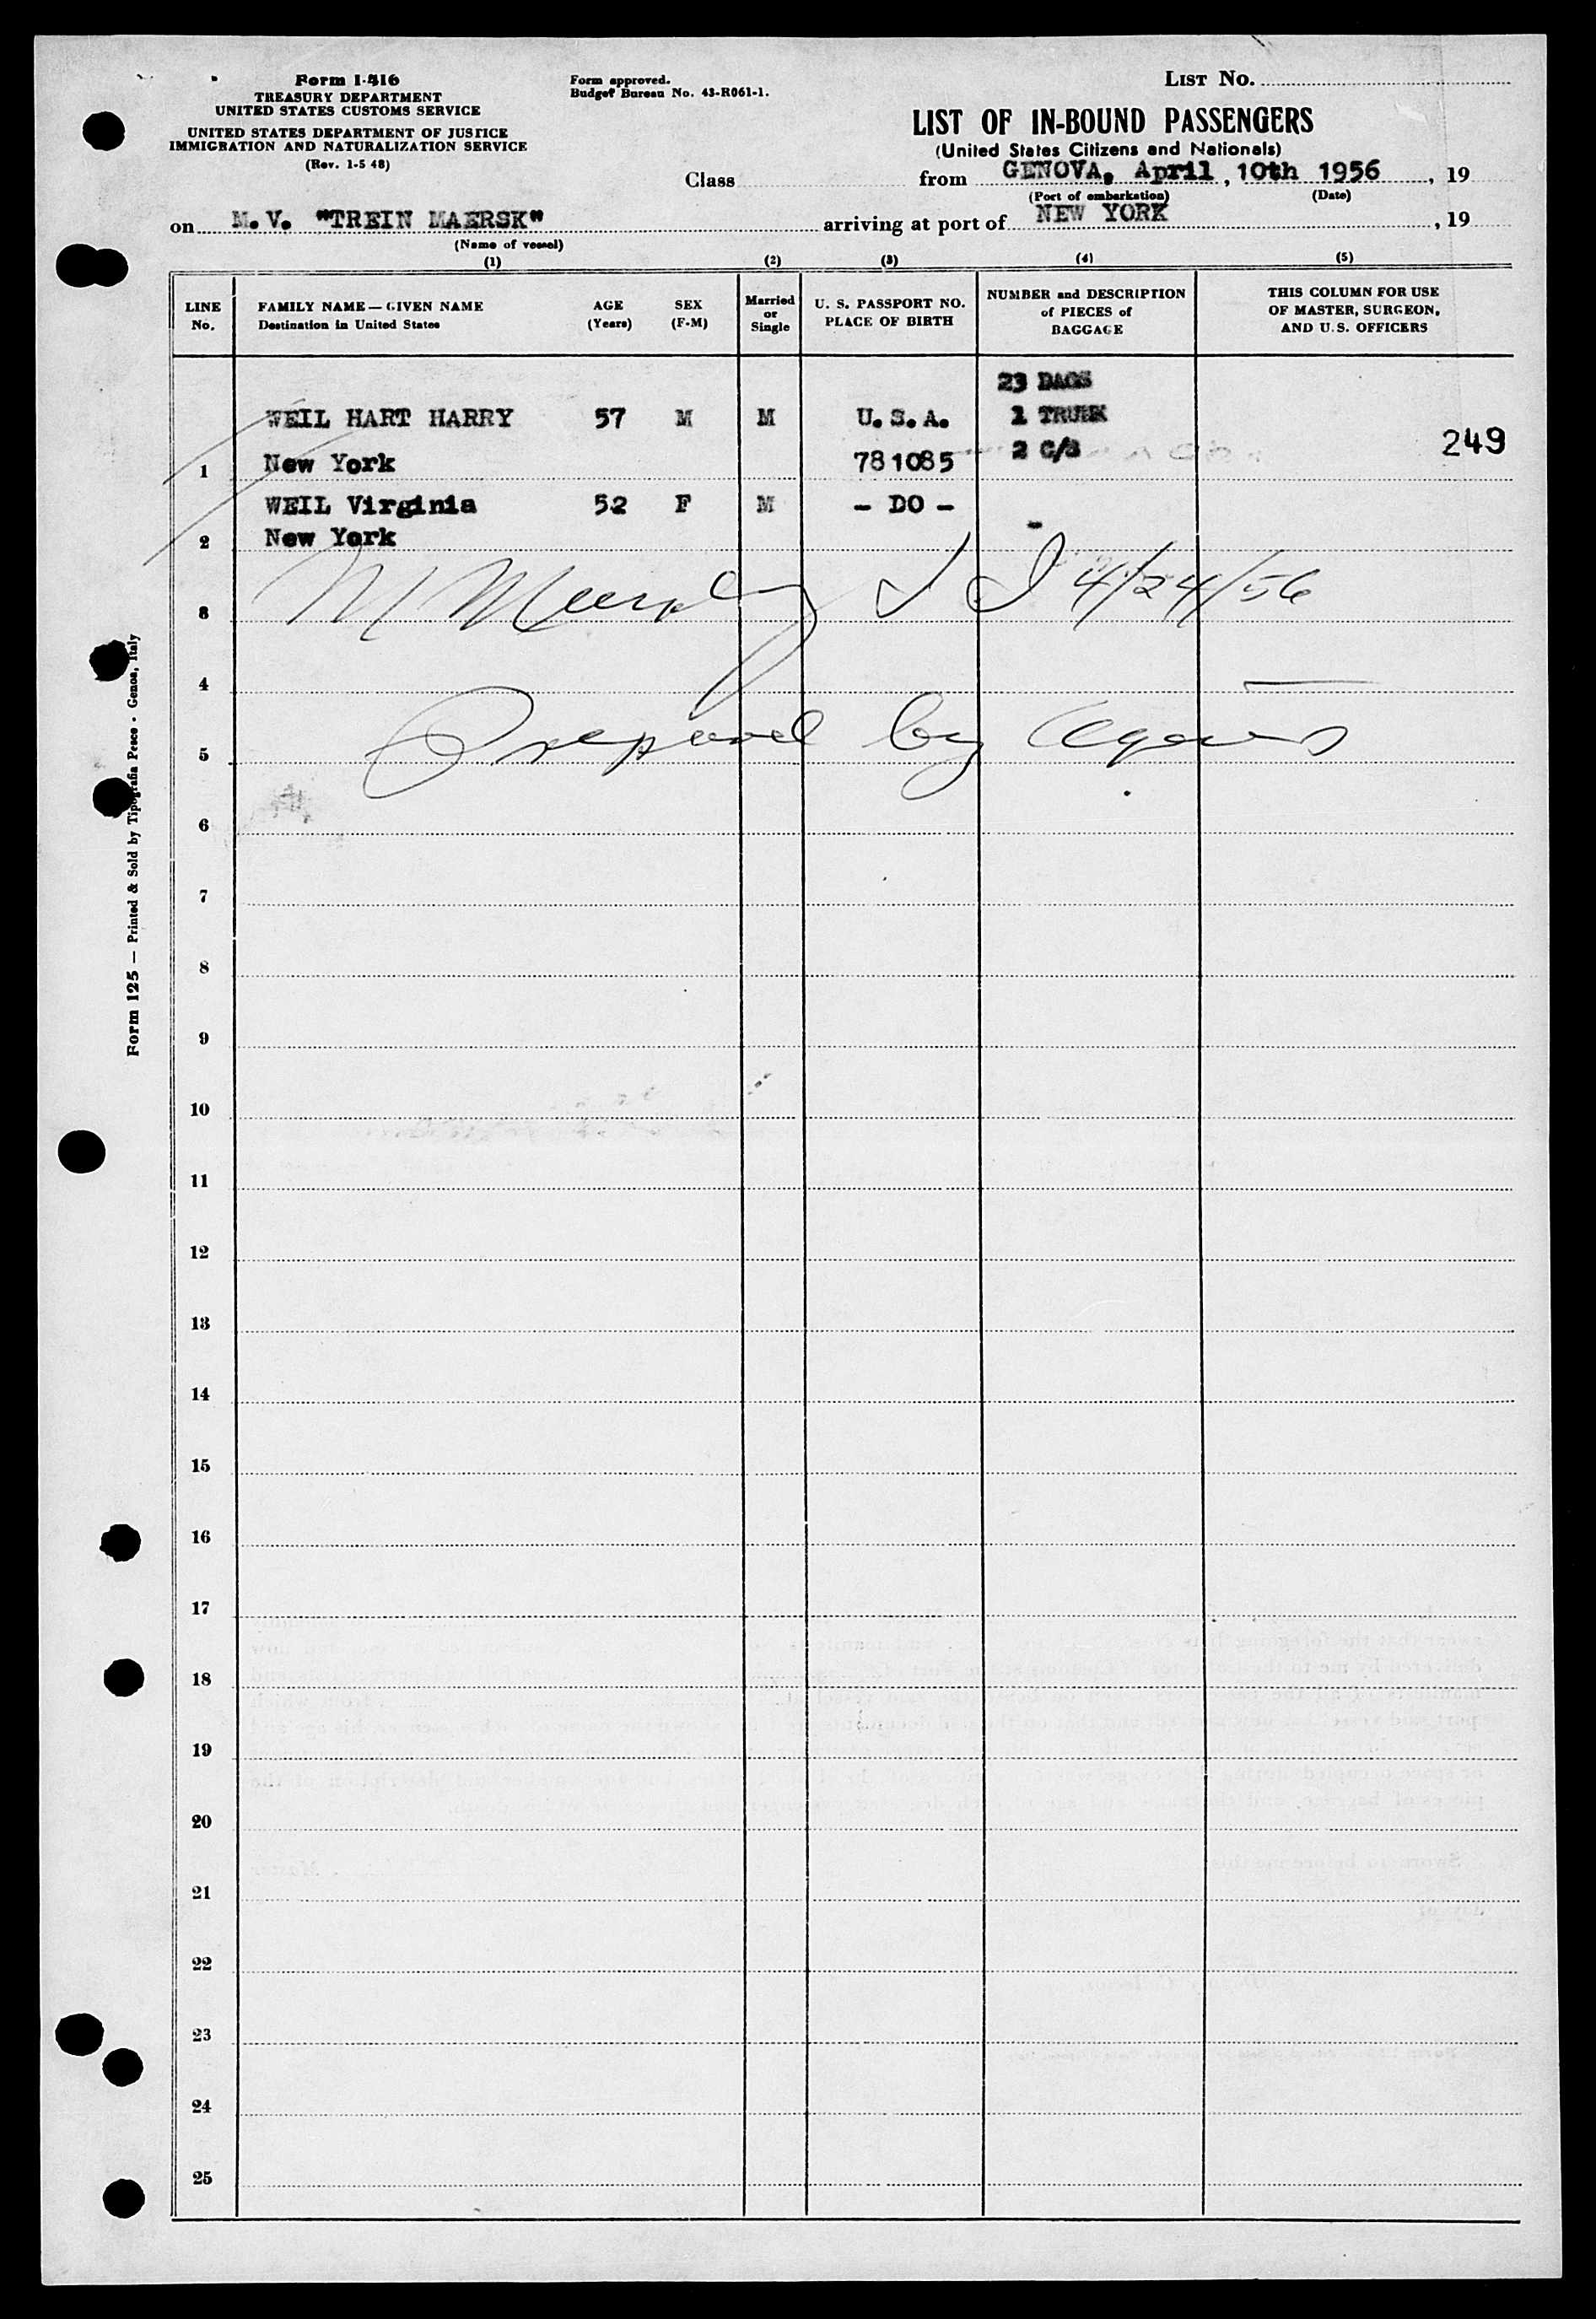 Form I-416
TREASURY DEPARTMENT
UNITED STATES CUSTOMS SERVICE
UNITED STATES DEPARTMENT OF JUSTICE
IMMIGRATION AND NATURALIZATION SERVICE
(Rev. 1-5 48)
Form approved.
Budget Bureau No. 43-R061-1.
LIST No.
LIST OF IN-BOUND PASSENGERS
(United States Citizens and Nationals)
Class from GENOVA, April, 10th 1956, 19
(Port of embarkation) (Date)
on M.V. "TREIN MAERSK" arriving at port of NEW YORK, 19
(Name of vessel)
(1) (2) (3) (4) (5)
LINE No. FAMILY NAME — GIVEN NAME Destination in United States AGE (Years) SEX (F-M) Married or Single U. S. PASSPORT NO. PLACE OF BIRTH NUMBER and DESCRIPTION of PIECES of BAGGAGE THIS COLUMN FOR USE OF MASTER, SURGEON, AND U.S. OFFICERS
23 BAGS
WEIL HART HARRY 57 M M U.S.A. 1 TRUNK
1 New York 781085 2 C/S 249
WEIL Virginia 52 F M - DO - -
2 New York
3 M Murphy 4/24/56
4
5 Prepared by Agents
6
7
8
9
10
11
12
13
14
15
16
17
18
19
20
21
22
23
24
25
Form 125 — Printed & Sold by Tipografia Pesce - Genoa, Italy